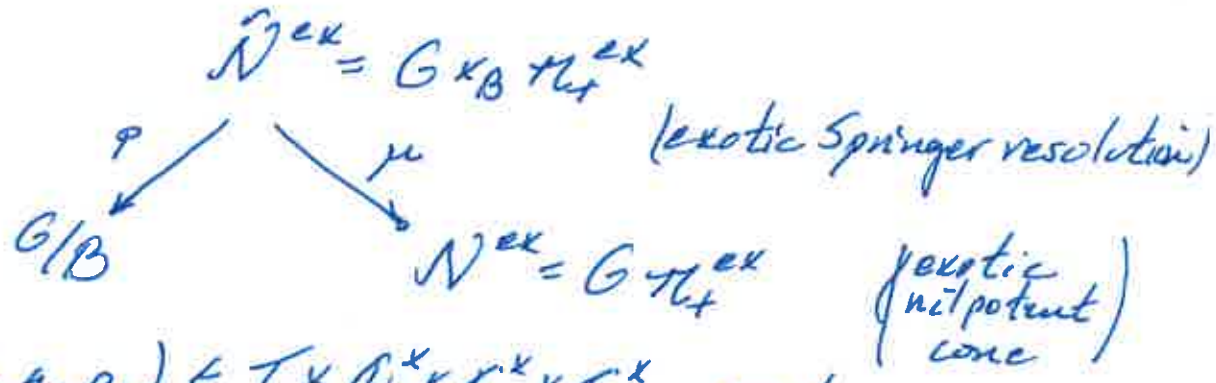 Ñ^{ex} = G ×_B n_+^{ex}
(exotic Springer resolution)
φ μ
G/B N^{ex} = G n_+^{ex} (exotic nilpotent cone)
) ∈ T × C^× × C^× × C^×